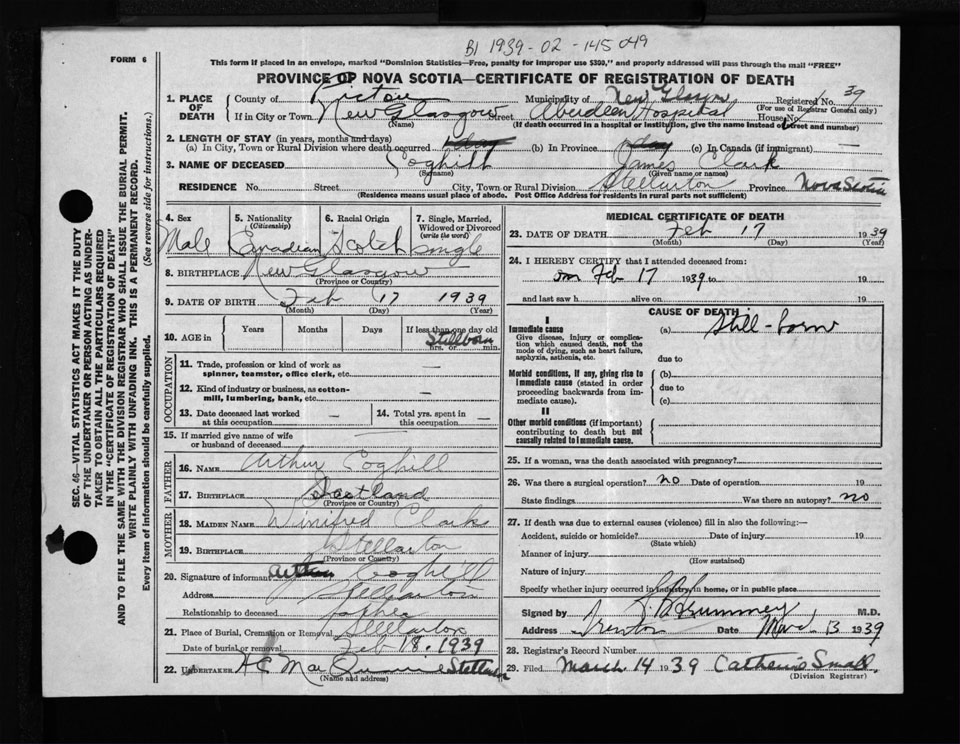 B1 1939-02-145049
FORM 6
This form if placed in an envelope, marked "Dominion Statistics—Free, penalty for improper use $300," and properly addressed will pass through the mail "FREE"
PROVINCE OF NOVA SCOTIA—CERTIFICATE OF REGISTRATION OF DEATH
1. PLACE OF DEATH
County of Pictou Municipality of New Glasgow Registered No. 39
(For use of Registrar General only)
If in City or Town New Glasgow Street Aberdeen Hospital House No.
(Name) (If death occurred in a hospital or institution, give the name instead of street and number)
2. LENGTH OF STAY (in years, months and days)
(a) In City, Town or Rural Division where death occurred 1 day (b) In Province 1 day (c) In Canada (if immigrant) —
3. NAME OF DECEASED Coghill James Clark
(Surname) (Given name or names)
RESIDENCE No. Street City, Town or Rural Division Stellarton Province Nova Scotia
(Residence means usual place of abode. Post Office Address for residents in rural parts not sufficient)
4. Sex Male
5. Nationality (Citizenship) Canadian
6. Racial Origin Scotch
7. Single, Married, Widowed or Divorced (write the word) Single
8. BIRTHPLACE New Glasgow
(Province or Country)
9. DATE OF BIRTH Feb 17 1939
(Month) (Day) (Year)
10. AGE in Years Months Days If less than one day old
Stillborn
hrs. or min.
OCCUPATION
11. Trade, profession or kind of work as spinner, teamster, office clerk, etc. —
12. Kind of industry or business, as cotton-mill, lumbering, bank, etc. —
13. Date deceased last worked at this occupation —
14. Total yrs. spent in this occupation —
15. If married give name of wife or husband of deceased —
FATHER
16. NAME Arthur Coghill
17. BIRTHPLACE Scotland
(Province or Country)
MOTHER
18. MAIDEN NAME Winifred Clarke
19. BIRTHPLACE Stellarton
(Province or Country)
20. Signature of informant Arthur Coghill
Address Stellarton
Relationship to deceased father
21. Place of Burial, Cremation or Removal Stellarton
Date of burial or removal Feb 18. 1939
22. UNDERTAKER Stellarton
(Name and address)
MEDICAL CERTIFICATE OF DEATH
23. DATE OF DEATH Feb 17 1939
(Month) (Day) (Year)
24. I HEREBY CERTIFY that I attended deceased from:
on Feb 17 1939 to 19
and last saw h alive on 19
CAUSE OF DEATH
I
Immediate cause (a) Still-born
Give disease, injury or complication which caused death, not the mode of dying, such as heart failure, asphyxia, asthenia, etc.
due to
Morbid conditions, if any, giving rise to immediate cause (stated in order proceeding backwards from immediate cause).
(b)
due to
(c)
II
Other morbid conditions (if important) contributing to death but not causally related to immediate cause.
25. If a woman, was the death associated with pregnancy?
26. Was there a surgical operation? no Date of operation 19
State findings Was there an autopsy? no
27. If death was due to external causes (violence) fill in also the following:—
Accident, suicide or homicide? Date of injury 19
(State which)
Manner of injury
(How sustained)
Nature of injury
Specify whether injury occurred in industry, in home, or in public place
Signed by M.D.
Address Trenton Date Mar 13 1939
28. Registrar's Record Number
29. Filed March 14 1939 Catherine Small
(Division Registrar)
SEC. 46—VITAL STATISTICS ACT MAKES IT THE DUTY
OF THE UNDERTAKER OR PERSON ACTING AS UNDER-
TAKER TO OBTAIN ALL THE PARTICULARS REQUIRED
IN THE "CERTIFICATE OF REGISTRATION OF DEATH"
AND TO FILE THE SAME WITH THE DIVISION REGISTRAR WHO SHALL ISSUE THE BURIAL PERMIT.
WRITE PLAINLY WITH UNFADING INK. THIS IS A PERMANENT RECORD.
Every item of information should be carefully supplied. (See reverse side for instructions.)